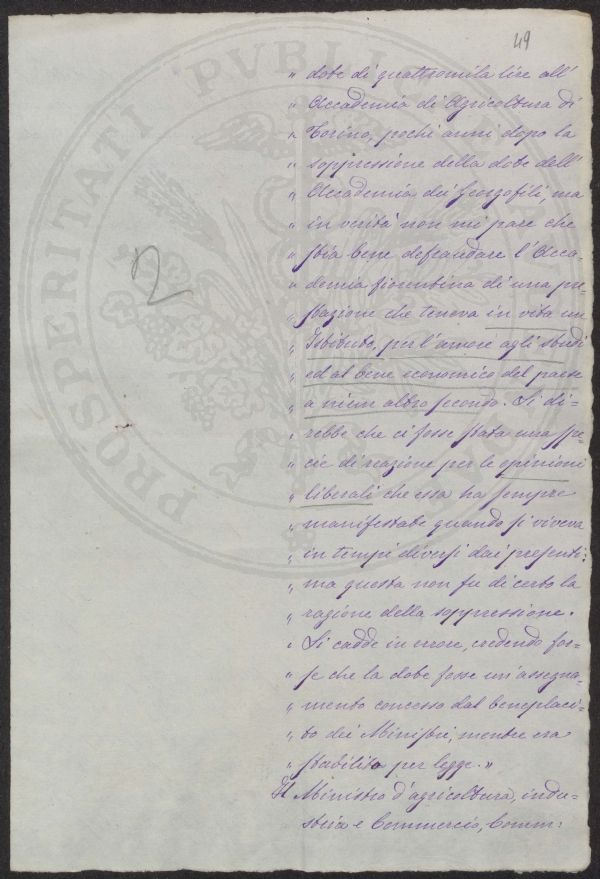 49
PROSPERITATI PVBLI
" dote di quattromila lire all'
" Accademia di Agricoltura di
" Torino, pochi anni dopo la
" soppressione della dote dell'
" Accademia dei Georgofili, ma
" in verità non mi pare che
" stia bene defraudare l'Acca-
" demia fiorentina di una pre-
" stazione che teneva in vita un
" Istituto, per l'amore agli studi
" ed al bene economico del paese
" a niun altro secondo. Si di-
" rebbe che ci fosse stata una spe-
" cie di reazione per le opinioni
" liberali che essa ha sempre
" manifestate quando si viveva
" in tempi diversi dai presenti:
" ma questa non fu di certo la
" ragione della soppressione.
" Si cadde in errore, credendo for-
" se che la dote fosse un'assegna-
" mento concesso dal beneplaci-
" to dei Ministri, mentre era
" stabilito per legge. "
Il Ministro d'agricoltura, indu-
stria e Commercio, Comm: